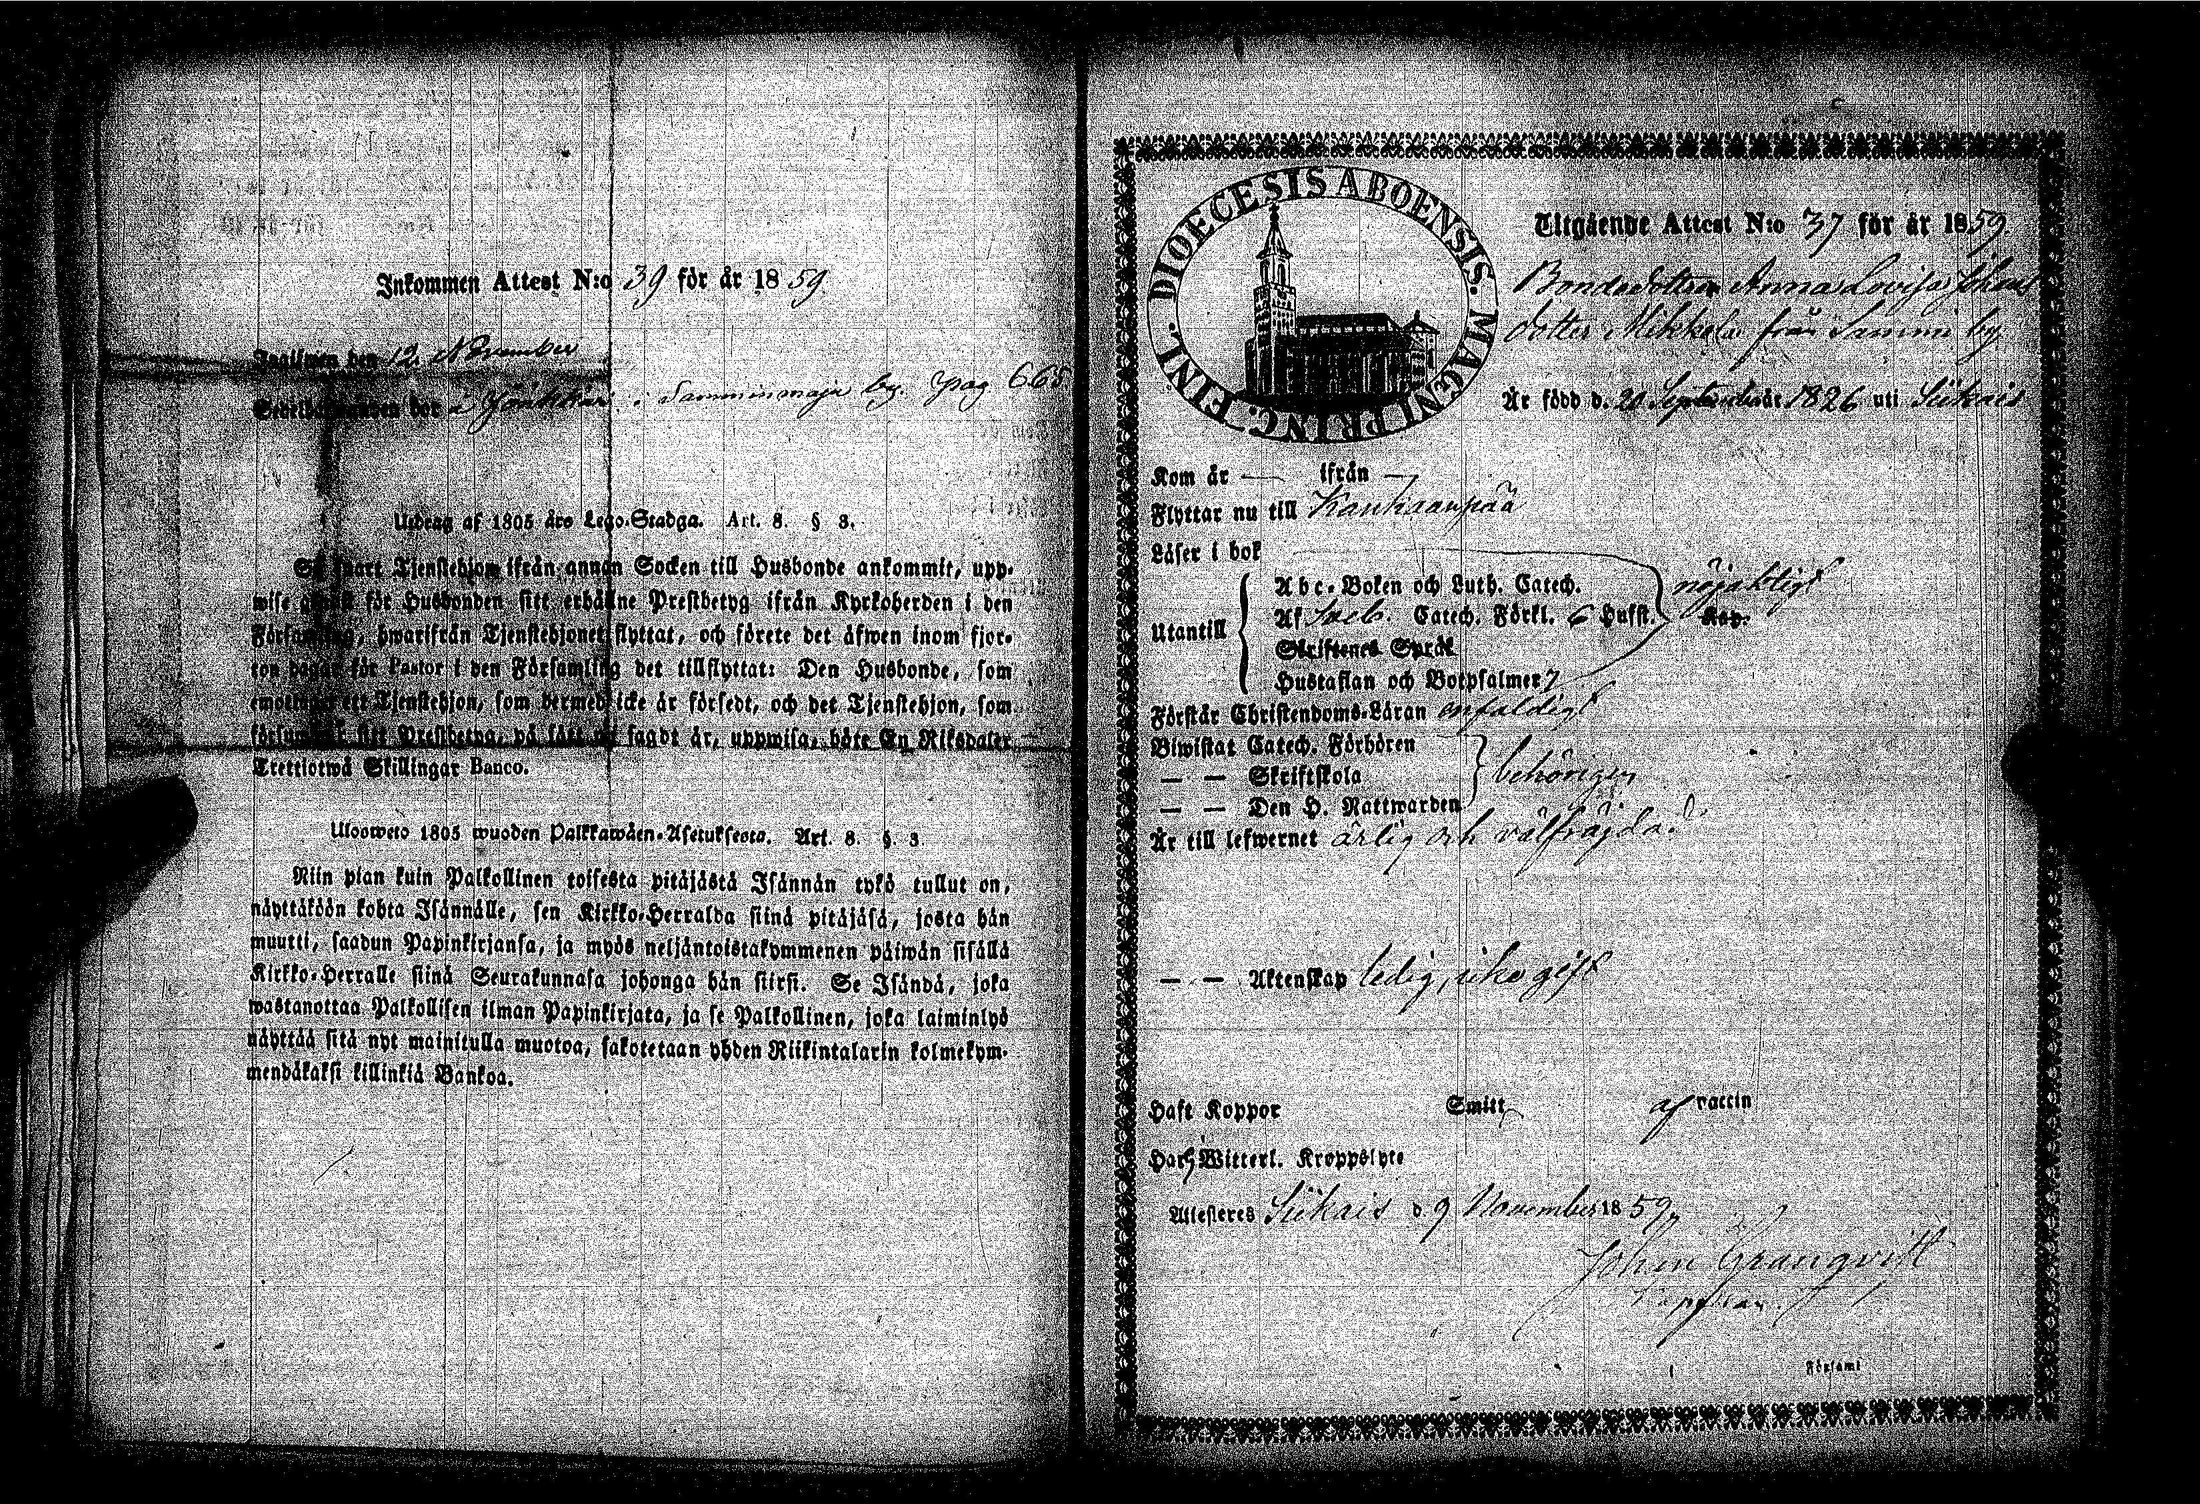 Inkommen Attest N:o 39 för år 1859
Ingifwen den 12 November
Sedelhafwanden bor å i Samminmaja by. pag 665
Utdrag af 1805 års Lego-Stadga. Art. 8. § 3.
Så snart Tjenstehjon ifrån annan Socken till Husbonde ankommit, upp-
wise genast för Husbonden sitt erhållne Prestbetyg ifrån Kyrkoherden i den
Församling, hwarifrån Tjenstehjonet flyttat, och förete det äfwen inom fjor-
ton dagar för Pastor i den Församling det tillflyttat: Den Husbonde, som
emottager ett Tjenstehjon, som dermed icke är försedt, och det Tjenstehjon, som
försummar sitt Prestbetyg, på sätt nu sagdt är, uppwisa, böte En Riksdaler
Trettiotwå Skillingar Banco.
Ulosweto 1805 wuoden Palkkawäen-Asetuksesta. Art. 8. §. 3
Niin pian kuin Palkollinen toisesta pitäjästä Isännän tykö tullut on,
näyttäköön kohta Isännälle, sen Kirkko-Herralda siinä pitäjäsä, josta hän
muutti, saadun Papinkirjansa, ja myös neljäntoistakymmenen päiwän sisällä
Kirkko-Herralle siinä Seurakunnasa johonga hän siirsi. Se Isändä, joka
wastanottaa Palkollisen ilman Papinkirjata, ja se Palkollinen, joka laiminlyö
näyttää sitä nyt mainitulla muotoa, sakotetaan yhden Riikintalarin kolmekym-
mendäkaksi killinkiä Bankoa.
DIOECESIS ABOENSIS. MAGNI PRINC. FINL.
Utgående Attest N:o 37 för år 1859.
Bondedottren Anna Lovisa Johans
dotter Mikkola från Sammi by
Är född d. 20 September år 1826 uti Siikais
Kom år — ifrån —
Flyttar nu till Kankaanpää
Läser i bok
Abc-Boken och Luth. Catech. nöjaktligt
Utantill Af Sveb. Catech. Förkl. 6 Hufst. Kap.
Skriftenes Språk
Hustaflan och Botpsalmer 7
Förstår Christendoms-Läran enfaldigt
Biwistat Catech. Förhören
— — Skriftskola behörigen
— — Den H. Nattwarden
Är till lefwernet ärlig och välfräjdad
— — Äktenskap ledig, icke gift
Haft Koppor Smitt af vaccin
Har ej Witterl. Kroppslyte
Attesteres Siikais d. 9 November 1859,
Johan Granqvist
Kapellan.
Församl